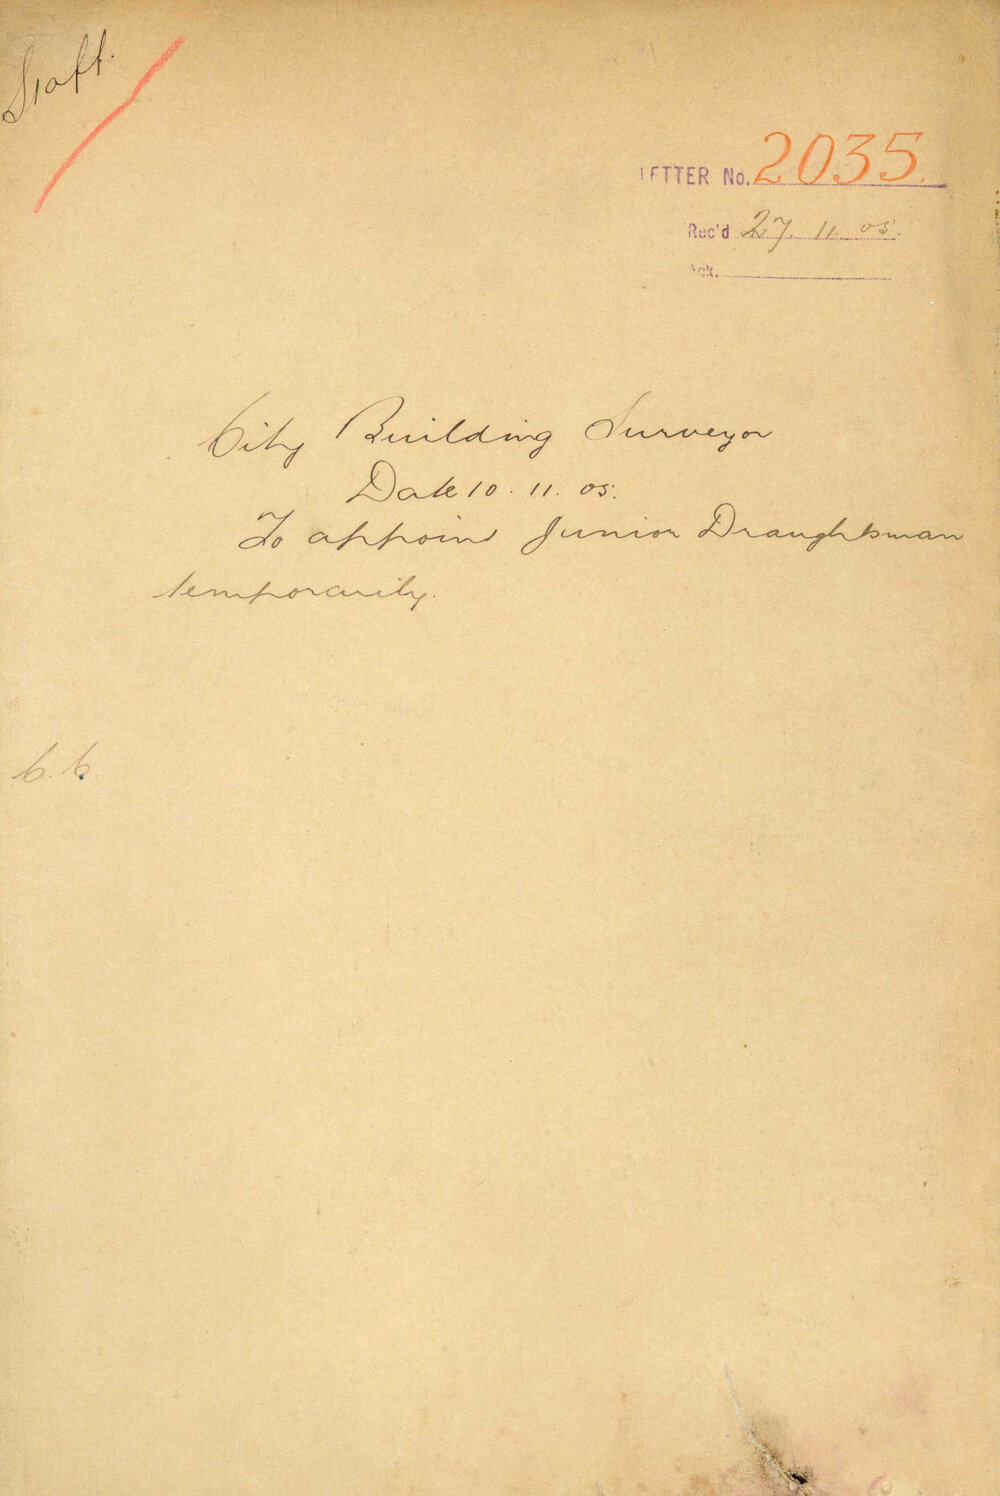 Staff.
LETTER No. 2035.
Rec'd 27. 11. 05.
Ack.
City Building Surveyor
Date 10. 11. 05.
To appoint Junior Draughtsman
temporarily.
C. C.